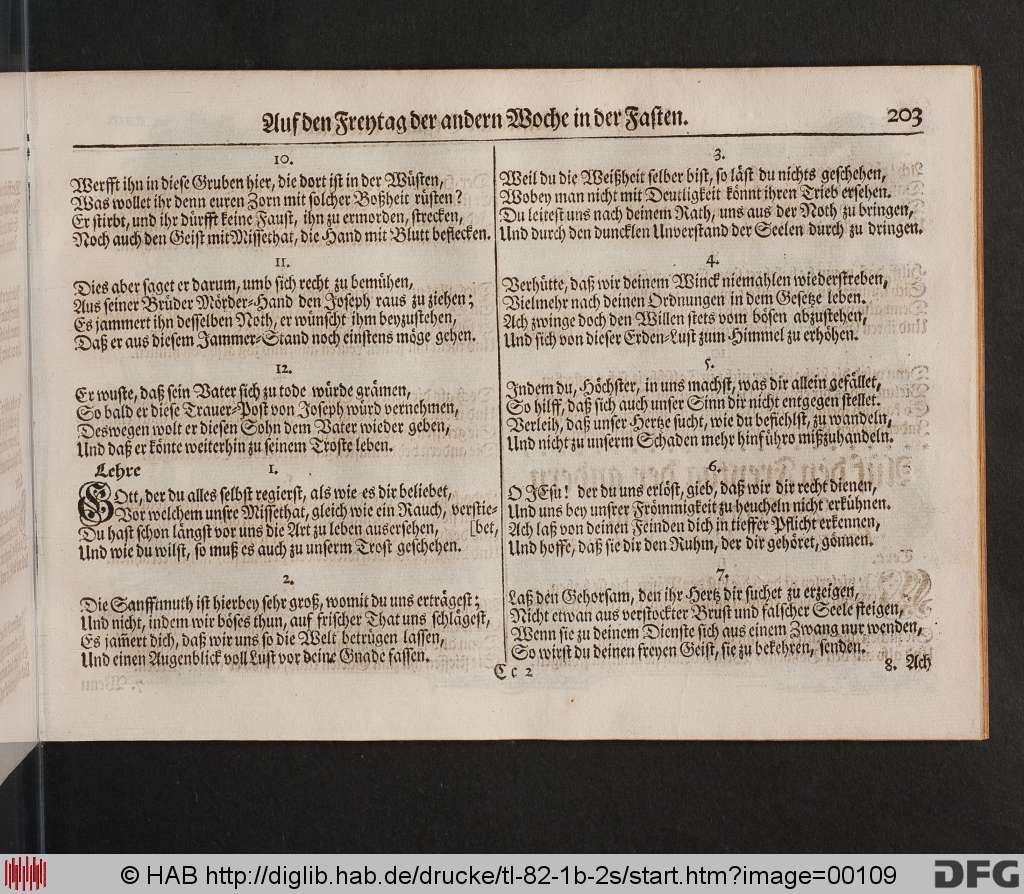 Auf den Freytag der andern Woche in der Fasten. 203
10.
Werfft ihn in diese Gruben hier, die dort ist in der Wüsten,
Was wollet ihr denn euren Zorn mit solcher Boßheit rüsten?
Er stirbt, und ihr dürfft keine Faust, ihn zu ermorden, strecken,
Noch auch den Geist mit Missethat, die Hand mit Blutt beflecken.
11.
Dies aber saget er darum, umb sich recht zu bemühen,
Aus seiner Brüder Mörder-Hand den Joseph raus zu ziehen;
Es jammert ihn desselben Noth, er wünscht ihm beyzustehen,
Daß er aus diesem Jammer-Stand noch einstens möge gehen.
12.
Er wuste, daß sein Vater sich zu tode würde grämen,
So bald er diese Trauer-Post von Joseph würd vernehmen,
Deswegen wolt er diesen Sohn dem Vater wieder geben,
Und daß er könte weiterhin zu seinem Troste leben.
Lehre 1.
GOtt, der du alles selbst regierst, als wie es dir beliebet,
Vor welchem unsre Missethat, gleich wie ein Rauch, verstie-
Du hast schon längst vor uns die Art zu leben ausersehen, [bet,
Und wie du wilst, so muß es auch zu unserm Trost geschehen.
2.
Die Sanfftmuth ist hierbey sehr groß, womit du uns erträgest;
Und nicht, indem wir böses thun, auf frischer That uns schlägest,
Es jam̄ert dich, daß wir uns so die Welt betrügen lassen,
Und einen Augenblick voll Lust vor deine Gnade fassen.
3.
Weil du die Weißheit selber bist, so läst du nichts geschehen,
Wobey man nicht mit Deutligkeit könnt ihren Trieb ersehen.
Du leitest uns nach deinem Rath, uns aus der Noth zu bringen,
Und durch den duncklen Unverstand der Seelen durch zu dringen.
4.
Verhütte, daß wir deinem Winck niemahlen wiederstreben,
Vielmehr nach deinen Ordnungen in dem Gesetze leben.
Ach zwinge doch den Willen stets vom bösen abzustehen,
Und sich von dieser Erden-Lust zum Himmel zu erhöhen.
5.
Indem du, Höchster, in uns machst, was dir allein gefället,
So hilff, daß sich auch unser Sinn dir nicht entgegen stellet.
Verleih, daß unser Hertze sucht, wie du befiehlst, zu wandeln,
Und nicht zu unserm Schaden mehr hinführo mißzuhandeln.
6.
O JEsu! der du uns erlöst, gieb, daß wir dir recht dienen,
Und uns bey unsrer Frömmigkeit zu heucheln nicht erkühnen.
Ach laß von deinen Feinden dich in tieffer Pflicht erkennen,
Und hoffe, daß sie dir den Ruhm, der dir gehöret, gönnen.
7.
Laß den Gehorsam, den ihr Hertz dir suchet zu erzeigen,
Nicht etwan aus verstockter Brust und falscher Seele steigen,
Wenn sie zu deinem Dienste sich aus einem Zwang nur wenden,
So wirst du deinen freyen Geist, sie zu bekehren, senden.
Cc 2
8. Ach
© HAB http://diglib.hab.de/drucke/tl-82-1b-2s/start.htm?image=00109
DFG